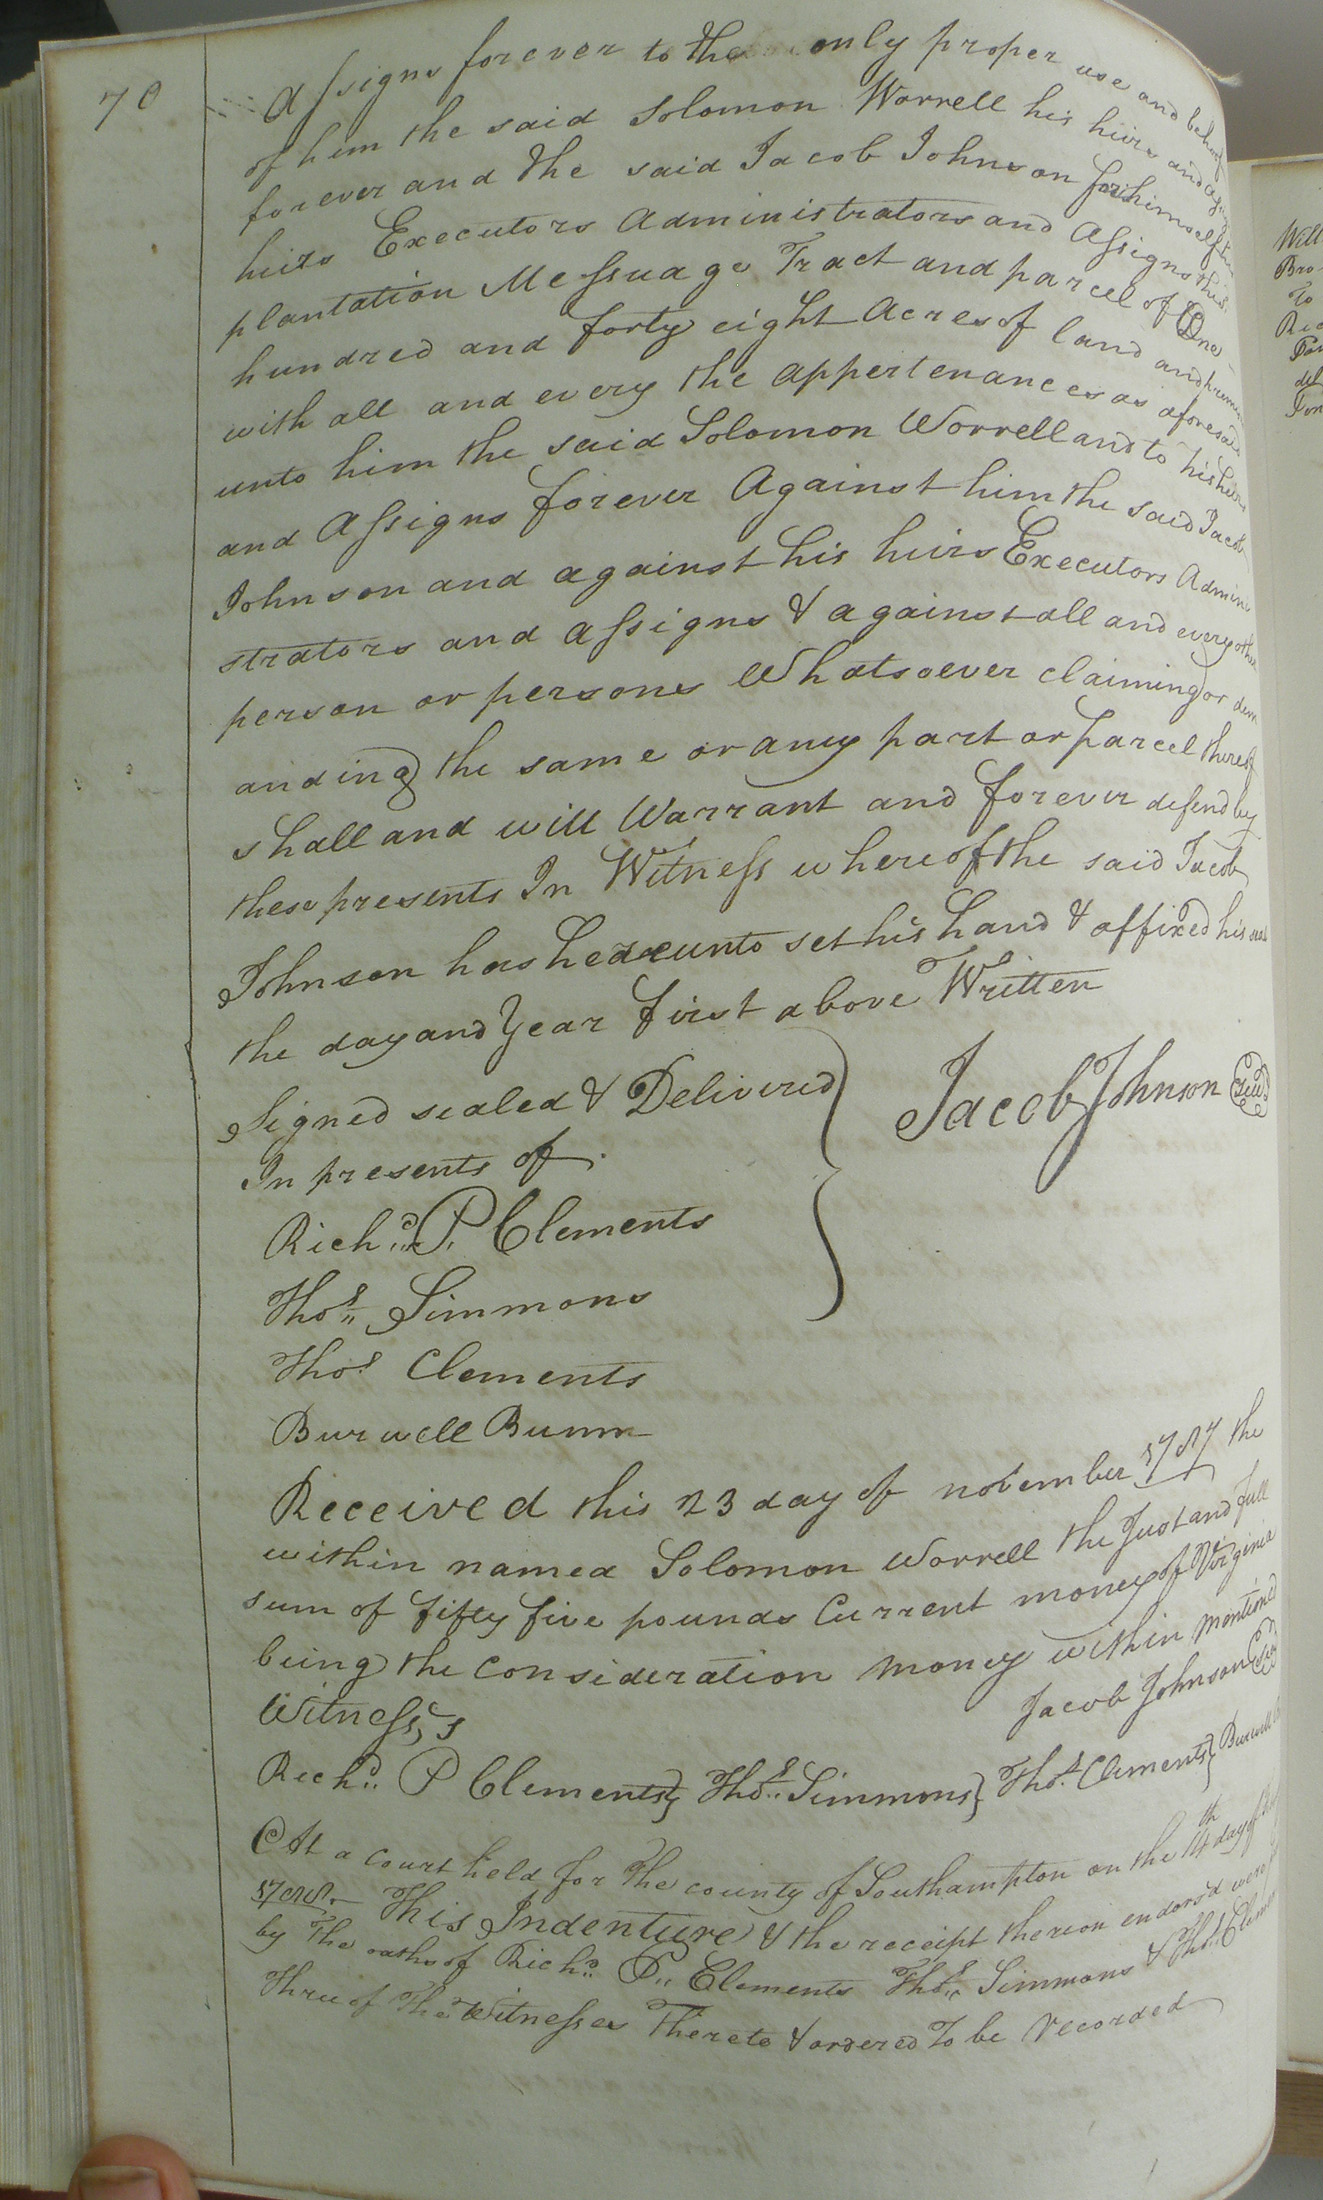 70
Assigns forever to the only proper use and behoof
of him the said Solomon Worrell his heirs and assigns
forever and the said Jacob Johnson for himself his
heirs Executors Administrators and Assigns this
plantation Messuage Tract and parcel of One
hundred and forty eight Acres of land and premises
with all and every the appertenances as aforesaid
unto him the said Solomon Worrell and to his heirs
and Assigns forever Against him the said Jacob
Johnson and against his heirs Executors Admini
strators and assigns & against all and every other
person or persons Whatsoever claiming or dem
anding the same or any part or parcel thereof
shall and will Warrant and forever defend by
these presents In Witness whereof the said Jacob
Johnson has hereunto set his hand & affixed his seal
the day and Year first above Written
Signed sealed & Delivered
In presents of
Jacob Johnson Seal
Richd. P. Clements
Thos. Simmons
Thos Clements
Burwell Bunn
Received this 23 day of november 1787 the
within named Solomon Worrell the Just and full
sum of fifty five pounds Current money of Virginia
being the Consideration money within mentioned
Jacob Johnson
Witness,s
Richd. P Clements Thos. Simmons Thos. Clements Burwell
At a court held for the county of Southampton on the day of
This Indenture & the receipt thereon endorsd were
by the oaths of Richd. P. Clements Thos. Simmons & Thos. Clements
three of the Witnesses Thereto & ordered To be recorded
Will
Bro
To